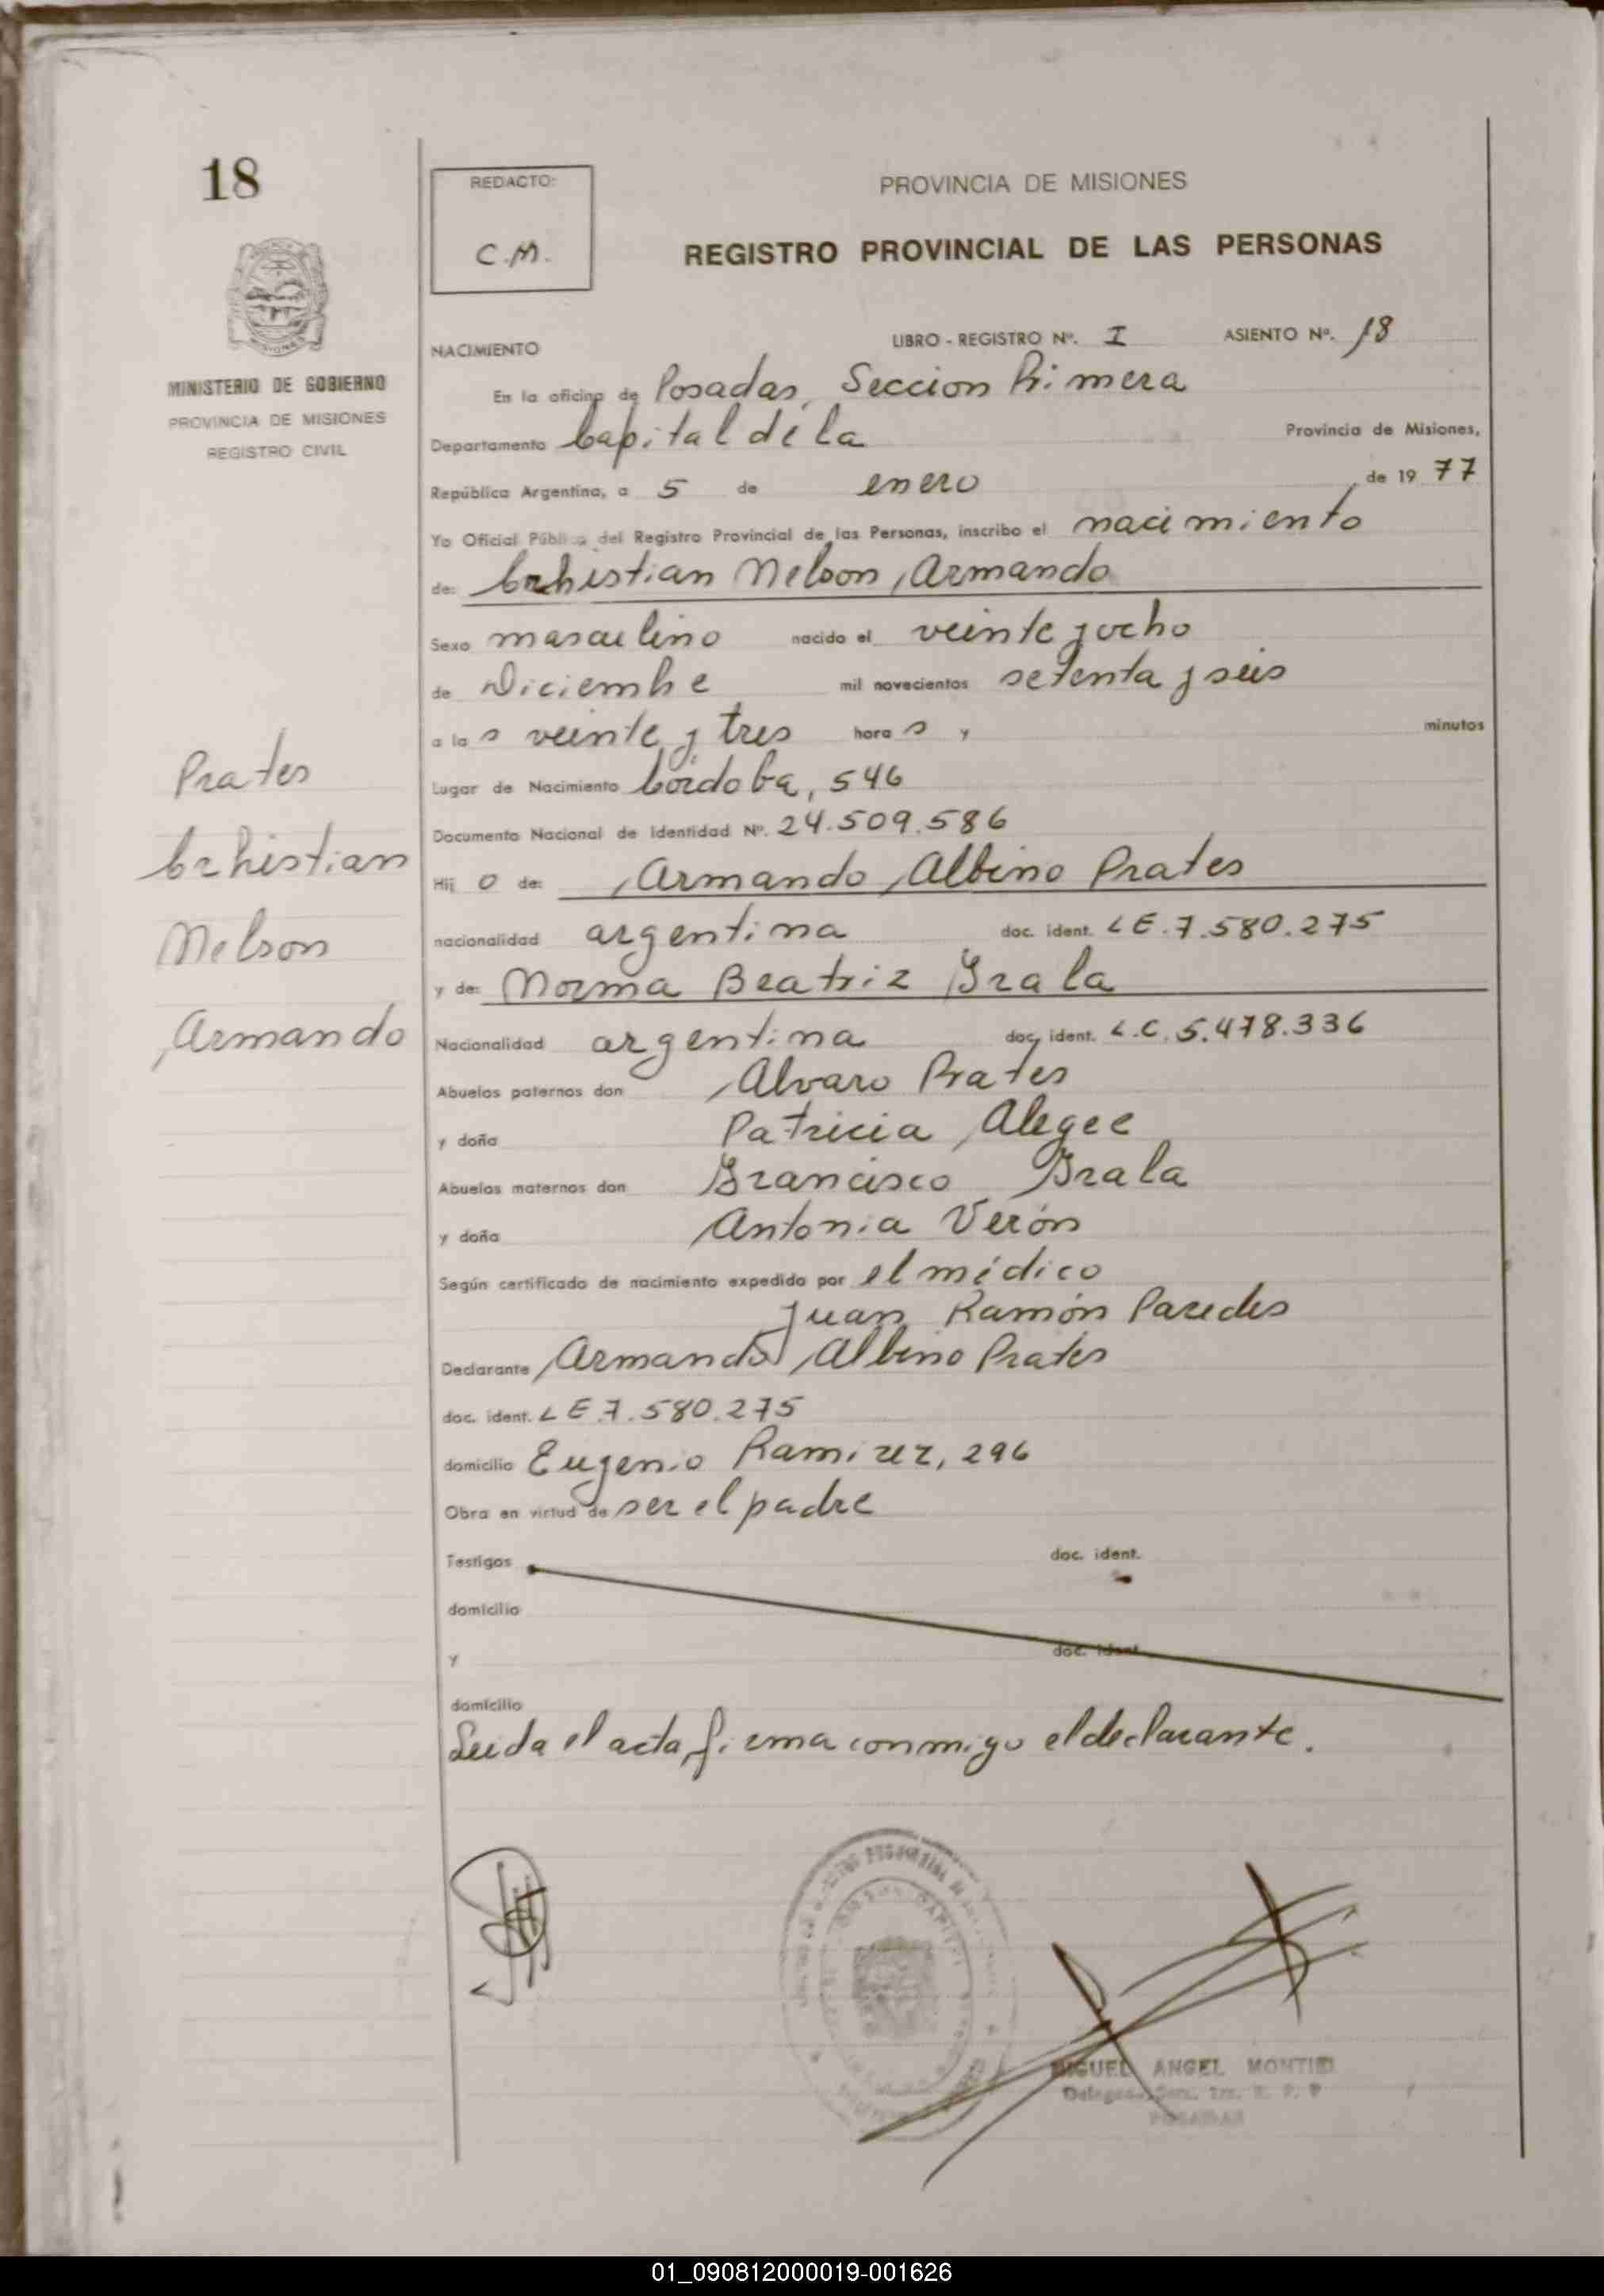 18
REDACTO:
C.M.
PROVINCIA DE MISIONES
REGISTRO PROVINCIAL DE LAS PERSONAS
MINISTERIO DE GOBIERNO
PROVINCIA DE MISIONES
REGISTRO CIVIL
NACIMIENTO LIBRO - REGISTRO Nº. I ASIENTO Nº. 18
En la oficina de Posadas, Seccion Primera
Departamento Capital de la Provincia de Misiones,
República Argentina, a 5 de enero de 19 77
Yo Oficial Público del Registro Provincial de las Personas, inscribo el nacimiento
de: Crhistian Nelson Armando
Sexo masculino nacido el veinte y ocho
de Diciembre mil novecientos setenta y seis
a la s veinte y tres hora s y minutos
Lugar de Nacimiento Córdoba, 546
Documento Nacional de Identidad Nº. 24.509.586
Hij o de: Armando Albino Prates
nacionalidad argentina doc. ident. LE.7.580.275
y de: Norma Beatriz Grala
Nacionalidad argentina doc. ident. L.C.5.478.336
Abuelos paternos don Alvaro Prates
y doña Patricia Alegre
Abuelos maternos don Francisco Grala
y doña Antonia Verón
Según certificado de nacimiento expedido por el médico
Juan Ramón Paredes
Declarante Armando Albino Prates
doc. ident. LE.7.580.275
domicilio Eugenio Ramirez, 296
Obra en virtud de ser el padre
Testigos doc. ident.
domicilio
y doc. ident.
domicilio
Leida el acta firma conmigo el declarante.
Prates
Crhistian
Nelson
Armando
MIGUEL ANGEL MONTIEL
POSADAS
01_090812000019-001626